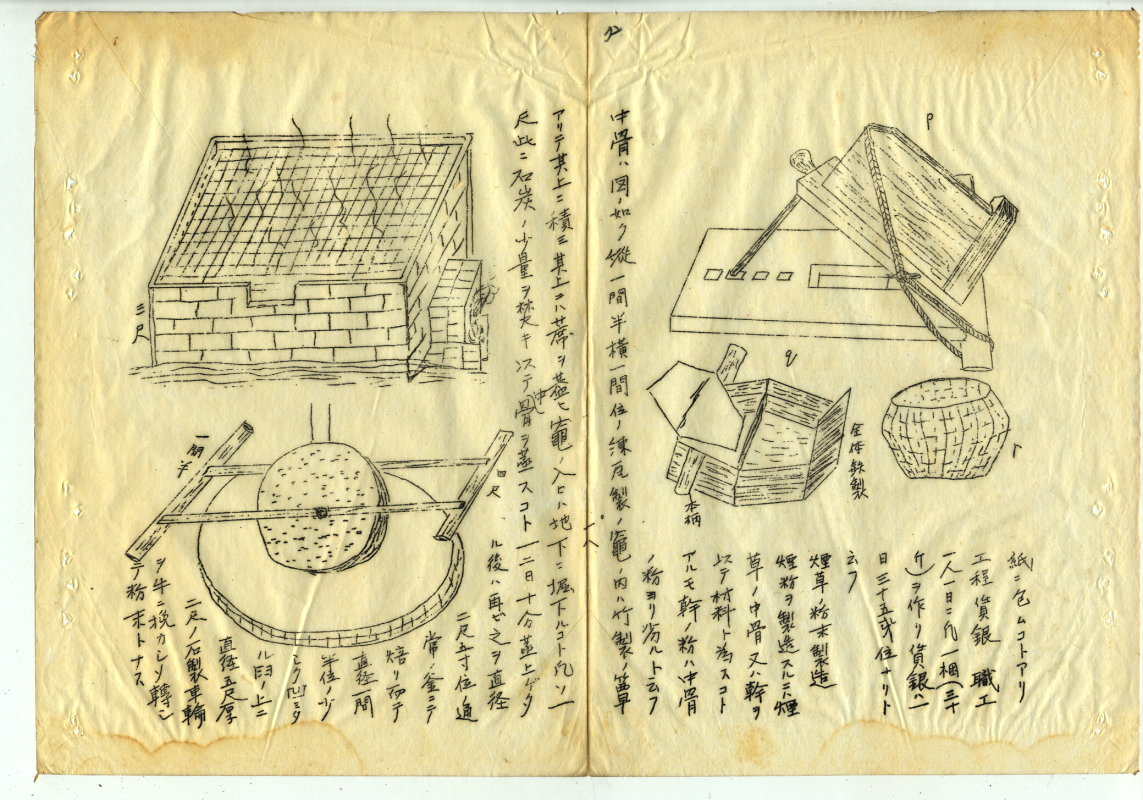 12
p
q
r
全体鉄製
木柄
紙ニ包ムコトアリ
工程賃銀 職工
一人一日ニ凡一梱(三十
斤)ヲ作リ賃銀ハ一
日三十五戔位ナリト
云フ
煙草ノ粉末製造
煙粉ヲ製造スルニハ煙
草ノ中骨又ハ幹ヲ
以テ材料ト為スコト
アルモ幹ノ粉ハ中骨
ノ粉ヨリ劣ルト云フ
中骨ハ図ノ如ク縦一間半横一間位ノ煉瓦製ノ竈ノ内ハ竹製ノ簟
アリテ其上ニ積ミ其上ニハ蓆ヲ蓋ヒ竈ノ入口ハ地下ニ堀下ルコト凡ソ一
尺此ニ石炭ノ少量ヲ焚キ以テ中骨ヲ蒸スコト一二日十分蒸上ゲタ
ル後ハ再ビ之ヲ直径
二尺五寸位ノ通
常ノ釜ニテ
焙リ而テ
直径一間
半位ノ少
シク凹ミタ
ル臼ノ上ニ
直径五尺厚
二尺ノ石製車輪
ヲ牛ニ挽カシメ轉シ
テ粉末トナス
三尺
一間半
四尺